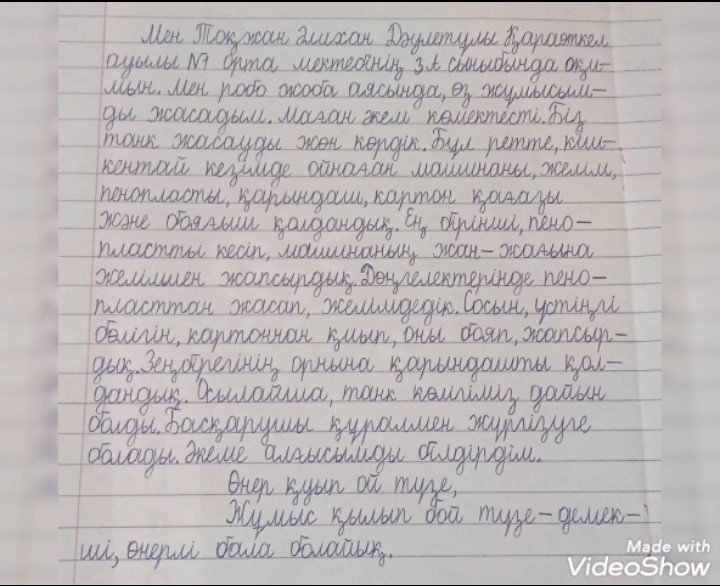 Мен Тоқжан Әлихан Дәулетұлы Қараөткел
ауылы №1 Орта мектебінің 3А сыныбында оқи-
мын. Мен робо жоба аясында, өз жұмысым-
ды жасадым. Маған әкем көмектесті. Біз
танк жасауды жөн көрдік. Бұл ретте, кіш-
кентай кезімде ойнаған машинаны, желім,
пенопласты, қарындаш, картон қағазы
және бояғыш қолдандық. Ең бірінші, пено-
пластты кесіп, машинаның жан-жағына
желіммен жапсырдық. Дөңгелектерінде пено-
пласттан жасап, желімдедік. Сосын, үстіңгі
бөлігін, картоннан қиып, оны бояп, жапсыр-
дық. Зеңбірегінің орнына қарындашты қол-
дандық. Осылайша, танк көлігіміз дайын
болды. Басқарушы құралмен жүргізуге
болады. Әкеме алғысымды білдірдім.
Өнер қуып ой түзе,
Жұмыс қылып бой түзе-демек-
ші, өнерлі бала болайық.
Made with
VideoShow